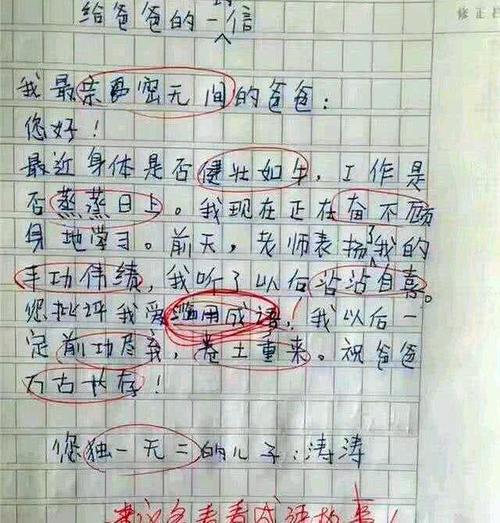 给爸爸的一信
修正
我最亲密无间的爸爸:
您好!
最近身体是否健壮如牛,工作是
否蒸蒸日上。我现在正在奋不顾
身地学习。前天,老师表扬了我的
丰功伟绩,我听了以后沾沾自喜。
您批评我爱滥用成语!我以后一
定前功尽弃,卷土重来。祝爸爸
万古长存!
您独一无二的儿子:涛涛
建议多去看看成语故事!